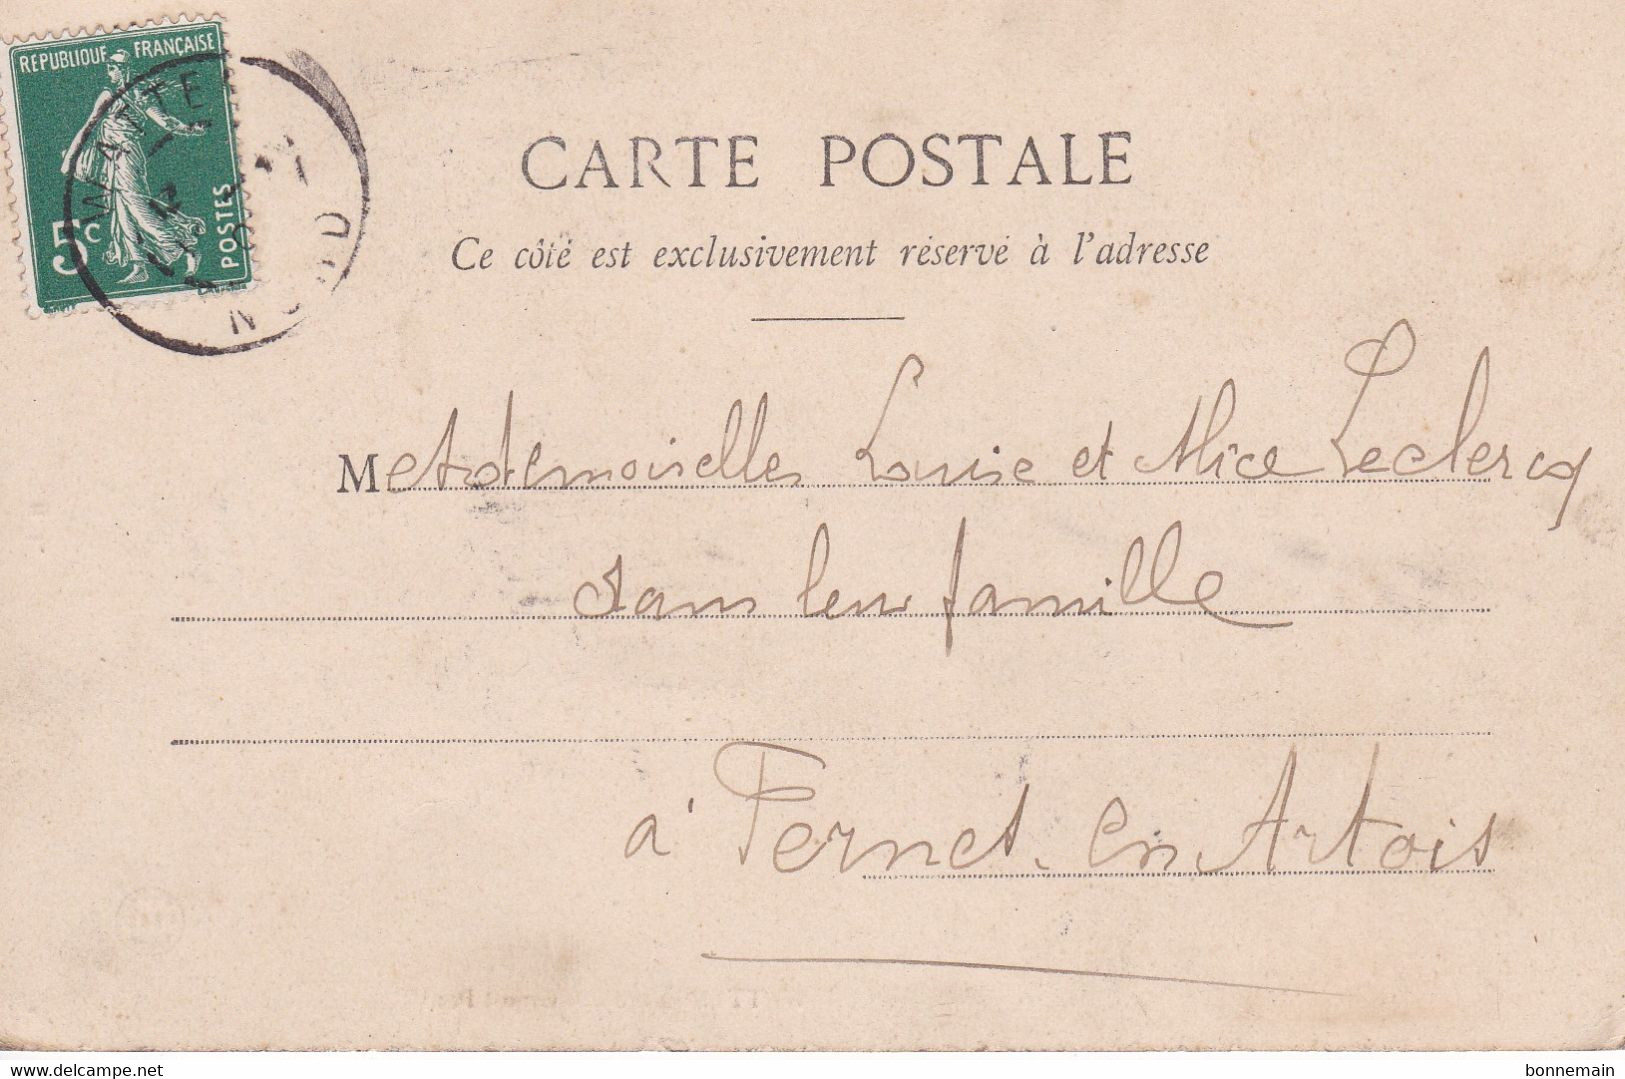 REPUBLIQUE FRANÇAISE
5c
POSTES
NORD
CARTE POSTALE
Ce côté est exclusivement réservé à l'adresse
Mesdemoiselles Louise et Alice Leclercq
dans leur famille
à Pernes-en-Artois
delcampe.net
bonnemain